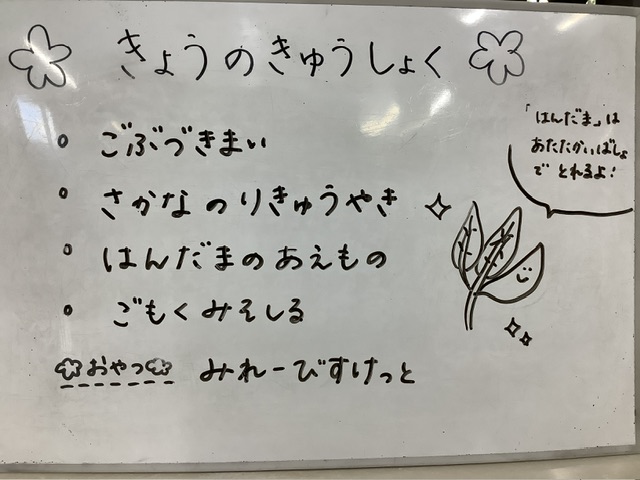 きょうのきゅうしょく
・ごぶづきまい
・さかなのりきゅうやき
・はんだまのあえもの
・ごもくみそしる
おやつ みれーびすけっと
「はんだま」は
あたたかいばしょ
で とれるよ!